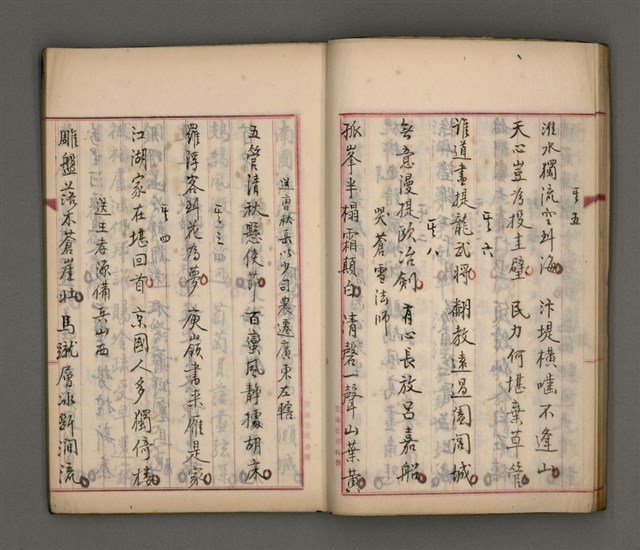 其五
淮水獨流空到海　汴堤橫噬不逢山
天心豈為投圭璧　民力何堪棄草管
其六
誰道書提龍武將　翻教遠過闔閭城
其八
無意漫提歐冶劍　有心長放呂嘉船
哭蒼雪法師
孤峯半榻霜顛白　清磬一聲山葉黃
送曹秋岳以少司農遷廣東左轄
五管清秋懸使節　百蠻風靜據胡床
其三
羅浮客到花為夢　庾嶺書来雁是家
其四
江湖家在堪回首　京國人多獨倚樓
送王孝源備兵山西
雕盤落木蒼崖壯　馬蹴層冰斷澗流